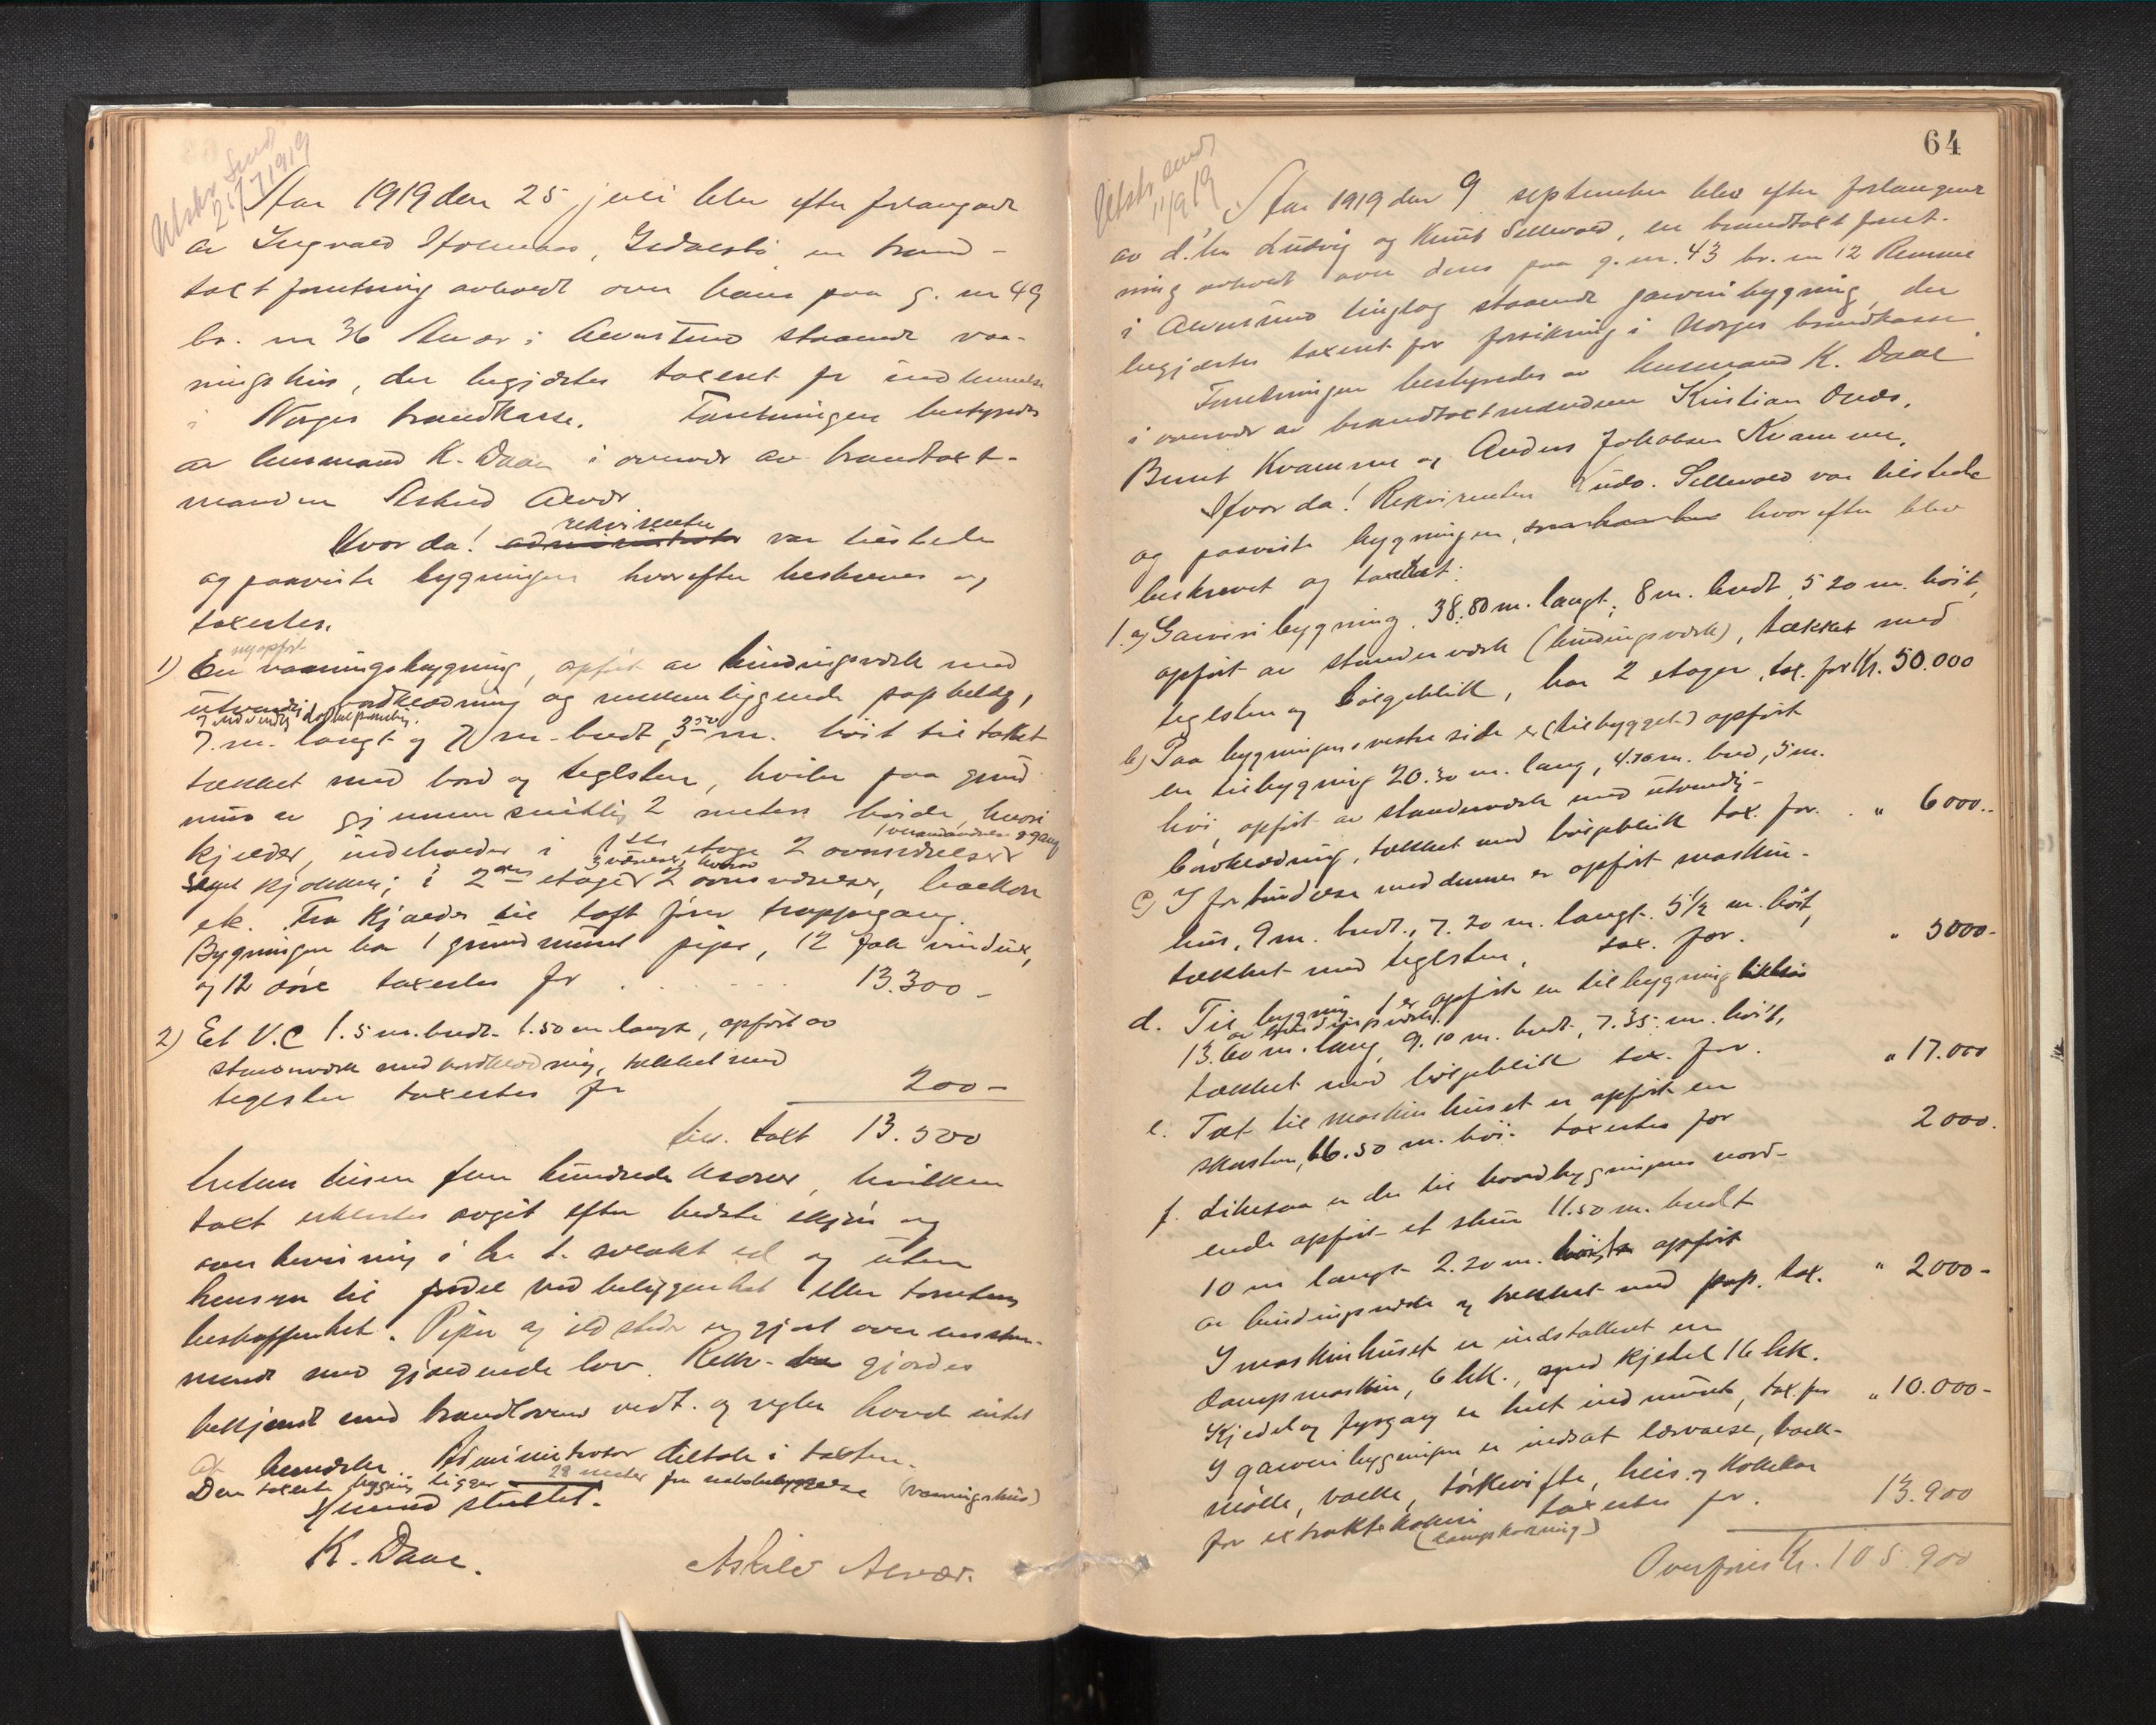 Utskr. Send
25/7 1919
Aar 1919 den 25 juli blev efter forlangende
av Ingvald Holmaas, Isdalstø en brand-
takt forretning avholdt over hans paa g. nr 49
br. nr 36 Alver i Alversund staaende vaa-
ningshus, der begjærtes taxeret for indlemmelse
i Norges brandkasse. Forretningen bestyredes
av lensmand K. Daae i overvær av brandtakst-
manden Askild Alvær
rekvirenten
Hvorda! var tilstede
og paaviste bygningen hvorefter beskrives og
taxertes.
nyopført
1) En vaaningsbygning, opført av bindingsverk med
utvendig bordklædning og mellemliggende papbelæg,
indvendig dobbel paneling.
7. m. langt og 7 m. bredt 3.50 m. høit til taket
tækket med bord og teglsten, hviler paa grund
mur av gjennemsnitlig 2 meters høide, hvori
kjelder, indeholder i 1ste etage 2 ovnsværelser
1 verandaværelse & gang
samt kjøkken; i 2den etage 2 ovnsværelser, balkon
3 værelser,
etc. Fra kjælder til loft fører trappegang.
Bygningen har 1 grundmuret pipe, 12 fak vinduer,
og 12 døre taxertes for . . . . . 13.300 -
2) Et V.C 1.5 m. bredt - 1.50 m langt, opført av
stavverk med bordklædning, tækket med
teglsten taxertes for 200 -
tils. takt 13.500
tretten tusen fem hundrede kroner, hvilken
takt erklærtes avgit efter bedste skjøn og
overbevisning i h. t. avlakt ed og uten
hensyn til fordel ved beliggenhet eller tomtens
beskaffenhet. Piper og ildsteder er gjort overensstem-
mende med gjældende lov. Rekv. gjordes
bekjendt med brandlovens vedt. og regler havde intet
at bemærke. Administrator deltok i taksten.
Den taxerte bygning ligger 28 meter fra nabobebyggelse (vaaningshus)
Forretn. sluttet.
K. Daae. Askild Alvær.
64
Utskr. sendt
11/9 19
Aar 1919 den 9 september blev efter forlangende
av d'hr Ludvig og Knut Sellevold, en brandtakt forret-
ning avholdt over deres paa g. nr. 43 br. nr 12 Remme
i Alversund tinglag staaende garveribygning, der
begjærtes taxert for forsikring i Norges brandkasse.
Forretningen bestyredes av lensmand K. Daae
i overvær av brandtakstmændene Kristian Hopland,
Bernt Kvamme og Anders Jakobsen Kvamme.
Hvorda! Rekvirenten Ludv. Sellevold var tilstede
og paaviste bygningen, hvorefter blev
beskrevet og taxert:
1. a) Garveribygning 38.80 m. langt, 8 m. bredt, 5 20 m. høit,
opført av stenderverk (bindingsverk), tækket med
teglsten og bølgeblik, har 2 etager, tax. for Kr. 50.000
b) Paa bygningens vestre side er (tilbygget) opført
en tilbygning 20.30 m. lang, 4.70 m. bred, 5 m.
høi, opført av stenderverk med utvendig-
bordklædning, tækket med bølgeblik tax. for. . " 6000..
c) I forbindelse med denne er opført maskin-
hus, 9 m. bredt, 7. 20 m. langt. 5 1/2 m. høit,
tækket med teglsten, tax. for. " 5000-
d. Til bygning 1 er opført en tilbygning
av bindingsverk.
13.60 m. lang, 9.10 m. bredt, 7.35 m. høit,
tækket med bølgeblik tax. for. " 17.000
e. Tæt til maskinhuset er opført en
skorsten, 16.50 m. høi. taxertes for 2000.
f. Likesaa er der til hovedbygningens nord-
ende opført et skur 11.50 m. bredt
10 m langt 2.20 m. høit opført
av bindingsverk og tækket med pap. tax. " 2000-
I maskinhuset er indstalleret en
dampmaskin, 6 hk., med kjedel 16 hk.
Kjedel og fyrgang er helt indmuret, tax. for " 10.000-
I garveribygningen er indsat lærvalse, bark-
mølle, valke, tørkevifte, heis og kokekar
for extraktkokeri taxertes for. 13.900
(dampkokning)
Overføres Kr. 105.900